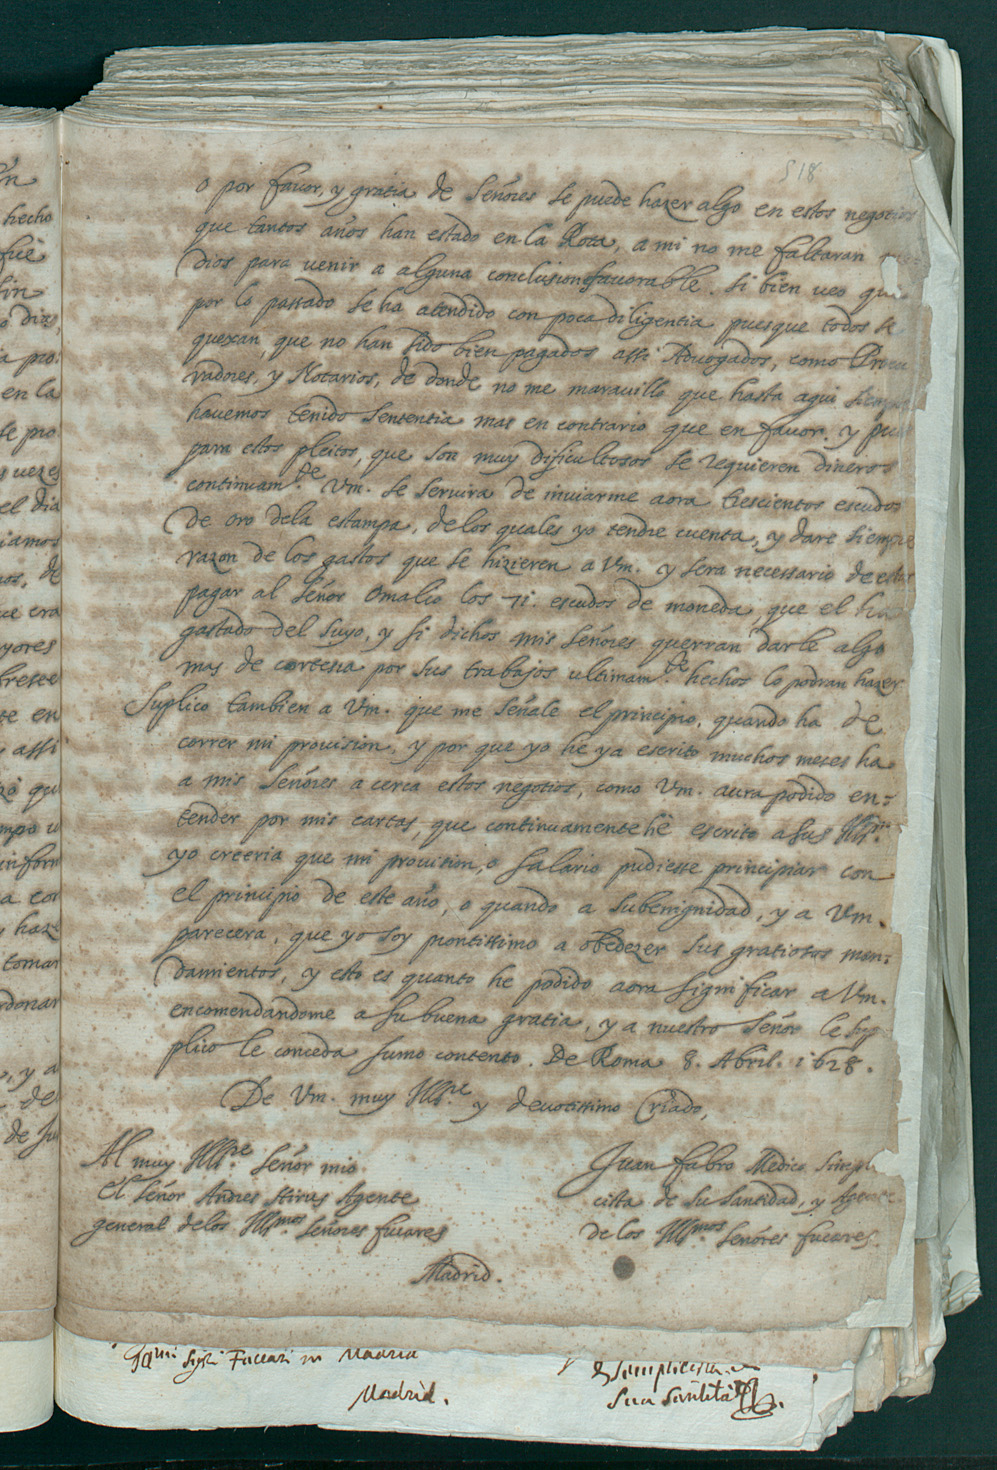 518
o por favor, y gratia de Señores se puede hazer algo en estos negocios
que tantos años han estado en la Rota, a mi no me faltaran
dios para venir a alguna conclusion favorable. si bien veo que
por lo passado se ha atendido con poca diligentia puesque todos se
quexan, que no han sido bien pagados assi Advogados, como Procu
radores, y Notarios, de donde no me maravillo que hasta aqui siempre
havemos tenido sententia mas en contrario que en favor. y pue
para estos pleitos, que son muy dificultosos se requieren dineros
continuam.te Vm. se servira de inviarme aora trescientos escudos
de oro dela estampa, delos quales yo tendre cuenta, y dare siempre
razon de los gastos que se hizieren a Vm. y sera necessario de estos
pagar al Señor Omalio los 71. escudos de moneda, que el ha
gastado del suyo, y si dichos mis Señores querran darle algo
mas de cortesia por sus trabajos ultimam.te hechos lo podran hazer.
Suplico tambien a Vm. que me señale el principio, quando ha de
correr mi provision, y por que yo hè ya escrito muchos meces ha
a mis Señores a cerca estos negotios, como Vm. aura podido en:
tender por mis cartas, que continuamente hè escrito a sus Ill.
yo creeria que mi provision, o salario pudiesse principiar con
el principio de este año, o quando a su benignidad, y a Vm.
parecera, que yo soy prontissimo a obedezer sus gratiosos man:
damientos, y esto es quanto he podido aora significar a Vm.
encomendandome a su buena gratia, y a nuestro Señor le sup
plico le conceda sumo contento. De Roma 8. Abril. 1628.
De Vm. muy Ill.re y devotissimo Criado,
Al muy Ill.re Señor mio
El Señor Andres Hirus Agente
general delos Ill.mos Señores fucares
Madrid.
Juan fabro Medico Simpli
cista de su Santidad, y Agente
de los Ill.mos Señores fucares
Fuccari in Madrid
Madrid.
Simplicista
Sua Santità